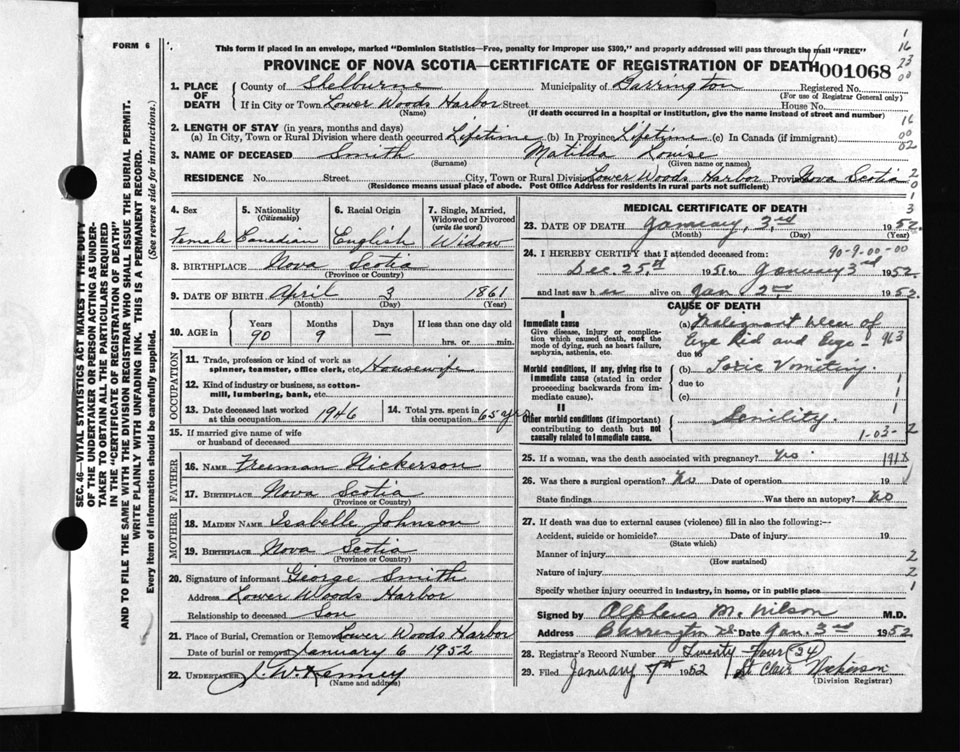 FORM 6
This form if placed in an envelope, marked "Dominion Statistics—Free, penalty for improper use $300," and properly addressed will pass through the mail "FREE"
PROVINCE OF NOVA SCOTIA—CERTIFICATE OF REGISTRATION OF DEATH
001068
1. PLACE OF DEATH
County of Shelburne Municipality of Barrington Registered No.
(For use of Registrar General only)
If in City or Town Lower Woods Harbor Street House No.
(Name) (If death occurred in a hospital or institution, give the name instead of street and number)
2. LENGTH OF STAY (in years, months and days)
(a) In City, Town or Rural Division where death occurred Lifetime (b) In Province Lifetime (c) In Canada (if immigrant)
3. NAME OF DECEASED Smith Matilda Louise
(Surname) (Given name or names)
RESIDENCE No. Street City, Town or Rural Division Lower Woods Harbor Province Nova Scotia
(Residence means usual place of abode. Post Office Address for residents in rural parts not sufficient)
4. Sex
Female
5. Nationality
(Citizenship)
Canadian
6. Racial Origin
English
7. Single, Married, Widowed or Divorced
(write the word)
Widow
8. BIRTHPLACE Nova Scotia
(Province or Country)
9. DATE OF BIRTH April 3 1861
(Month) (Day) (Year)
10. AGE in
Years Months Days If less than one day old
90 9 — hrs. or min.
OCCUPATION
11. Trade, profession or kind of work as
spinner, teamster, office clerk, etc. Housewife
12. Kind of industry or business, as cotton-
mill, lumbering, bank, etc.
13. Date deceased last worked
at this occupation 1946
14. Total yrs. spent in
this occupation 65 yrs
15. If married give name of wife
or husband of deceased
FATHER
16. NAME Freeman Nickerson
17. BIRTHPLACE Nova Scotia
(Province or Country)
MOTHER
18. MAIDEN NAME Isabelle Johnson
19. BIRTHPLACE Nova Scotia
(Province or Country)
20. Signature of informant George Smith
Address Lower Woods Harbor
Relationship to deceased Son
21. Place of Burial, Cremation or Removal Lower Woods Harbor
Date of burial or removal January 6 1952
22. UNDERTAKER J. W. Kenney
(Name and address)
MEDICAL CERTIFICATE OF DEATH
23. DATE OF DEATH January, 3rd 1952.
(Month) (Day) (Year)
90-9-00-00
24. I HEREBY CERTIFY that I attended deceased from:
Dec 25th 1951 to January 3rd 1952
and last saw her alive on Jan 2nd 1952.
CAUSE OF DEATH
I
Immediate cause
Give disease, injury or complication which caused death, not the mode of dying, such as heart failure, asphyxia, asthenia, etc.
(a) Malignant Ulcer of
Eye Lid and Eye
due to
Morbid conditions, if any, giving rise to immediate cause (stated in order proceeding backwards from immediate cause).
(b) Toxic Vomiting.
due to
(c)
II
Other morbid conditions (if important) contributing to death but not causally related to immediate cause.
Senility.
1-03-2
25. If a woman, was the death associated with pregnancy? No 191X
26. Was there a surgical operation? No Date of operation 19
State findings Was there an autopsy? No
27. If death was due to external causes (violence) fill in also the following:—
Accident, suicide or homicide? Date of injury 19
(State which)
Manner of injury
(How sustained)
Nature of injury
Specify whether injury occurred in industry, in home, or in public place
Signed by Alpheus M. Wilson M.D.
Address Barrington Date Jan. 3rd 1952
28. Registrar's Record Number Twenty Four (24)
29. Filed January 7th 1952 St Clair Nickerson
(Division Registrar)
SEC. 46—VITAL STATISTICS ACT MAKES IT THE DUTY
OF THE UNDERTAKER OR PERSON ACTING AS UNDER-
TAKER TO OBTAIN ALL THE PARTICULARS REQUIRED
IN THE "CERTIFICATE OF REGISTRATION OF DEATH"
AND TO FILE THE SAME WITH THE DIVISION REGISTRAR WHO SHALL ISSUE THE BURIAL PERMIT.
WRITE PLAINLY WITH UNFADING INK. THIS IS A PERMANENT RECORD.
Every item of information should be carefully supplied. (See reverse side for instructions.)
1
16
23
00
16
00
02
2
0
1
3
1
1
2
2
2
1